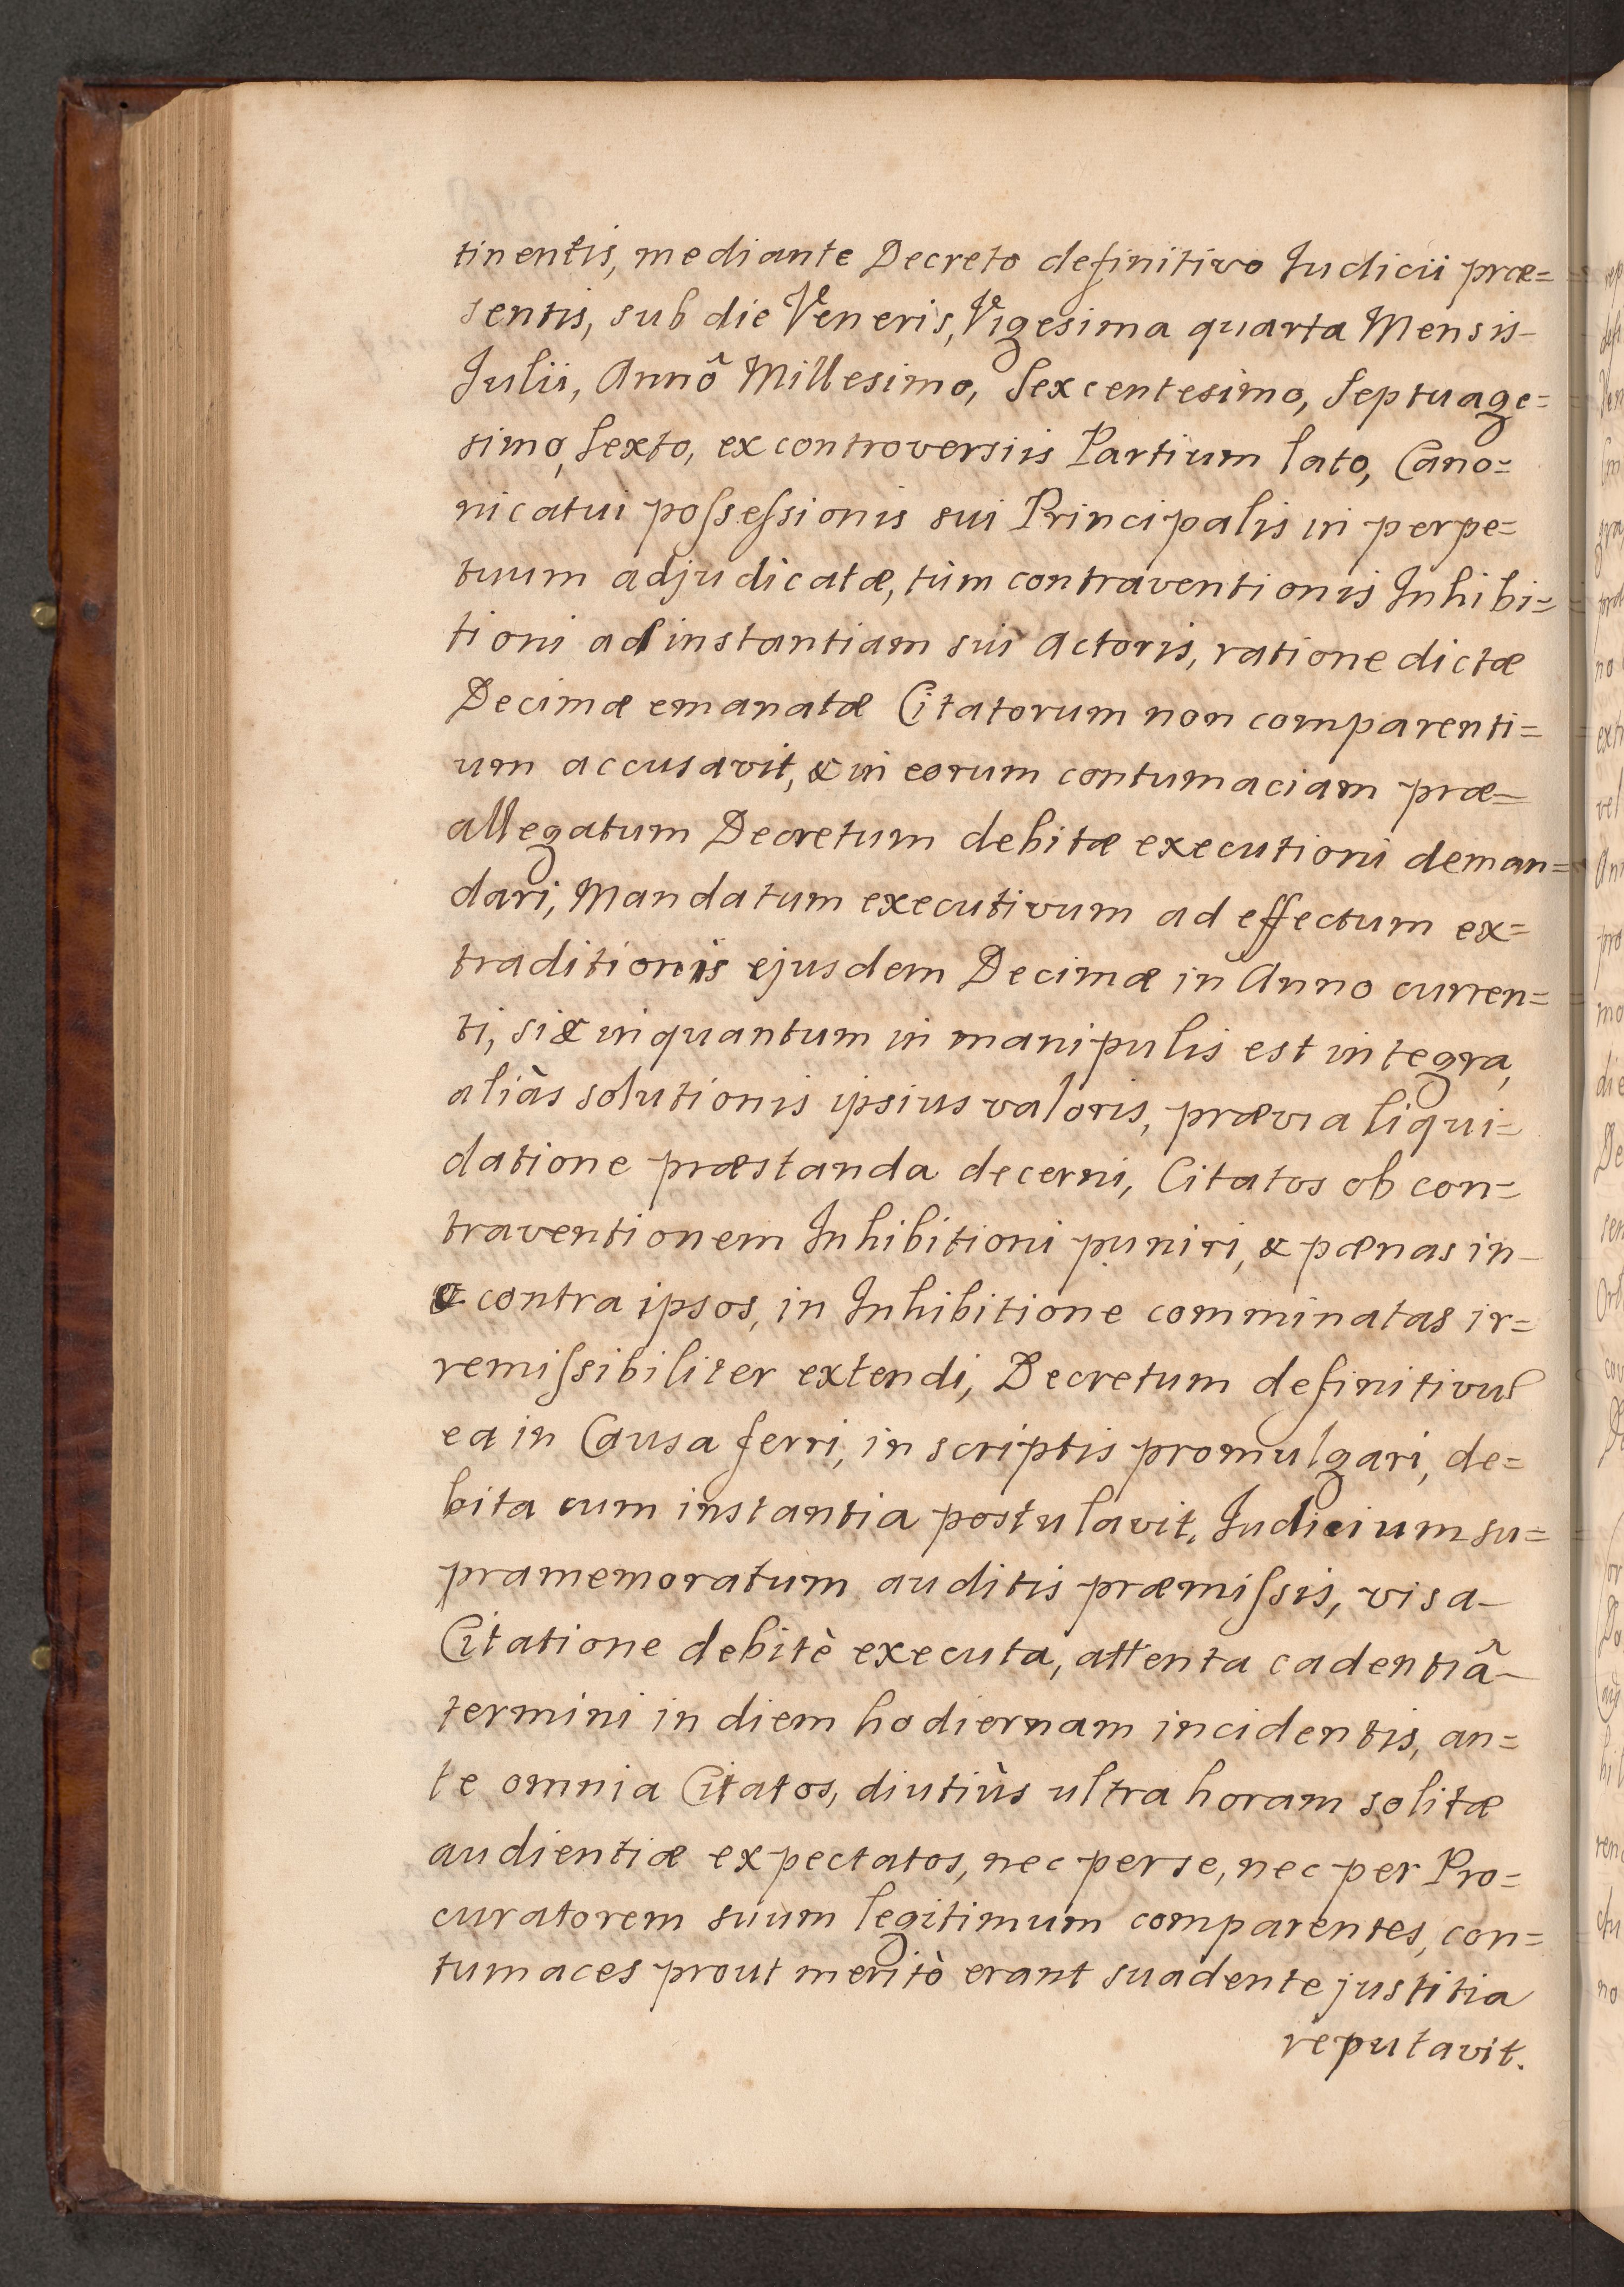 tinentis, mediante Decreto definitivo Iudicii præ=
sentis, sub die Veneris, Vigesima quarta Mensis-
Julii, Annô Millesimo, Sexcentesimo, Septuage=
simo, Sexto, ex controversiis Partium lato, Cano=
nicatui possessionis sui Principalis in perpe=
tuum adjudicatæ, tùm contraventionis Inhibi=
tioni ad instantiam sui Actoris, ratione dictæ
Decimæ emanatæ Citatorum non comparenti=
um accusavit, & in eorum contumaciam præ=
allegatum Decretum debitæ executioni deman=
dari, Mandatum executivum ad effectum ex=
traditionis ejusdem Decimæ in Anno curren=
ti, si & in quantum in manipulis est integra,
aliàs solutionis ipsius valoris, prævia liqui=
datione præstanda decerni, Citatos ob con=
traventionem Inhibitioni puniri, & pænas in-
& contra ipsos, in Inhibitione comminatas ir=
remissibiliter extendi, Decretum definitivum
ea in Causa ferri, in scriptis promulgari, de=
bita cum instantia postulavit. Iudicium su=
pramemoratum auditis præmissis, visa-
Citatione debitè executa, attenta cadentiâ-
termini in diem hodiernam incidentis, an=
te omnia Citatos, diutiùs ultra horam solitæ
audientiæ expectatos, nec per se, nec per Pro=
curatorem suum legitimum comparentes, con=
tumaces prout meritò erant suadente justitia
reputavit.